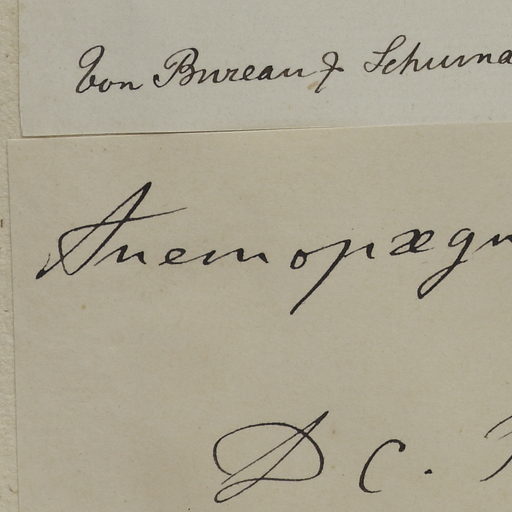 Von Bureau & Schuma
Anemopægm
D C.